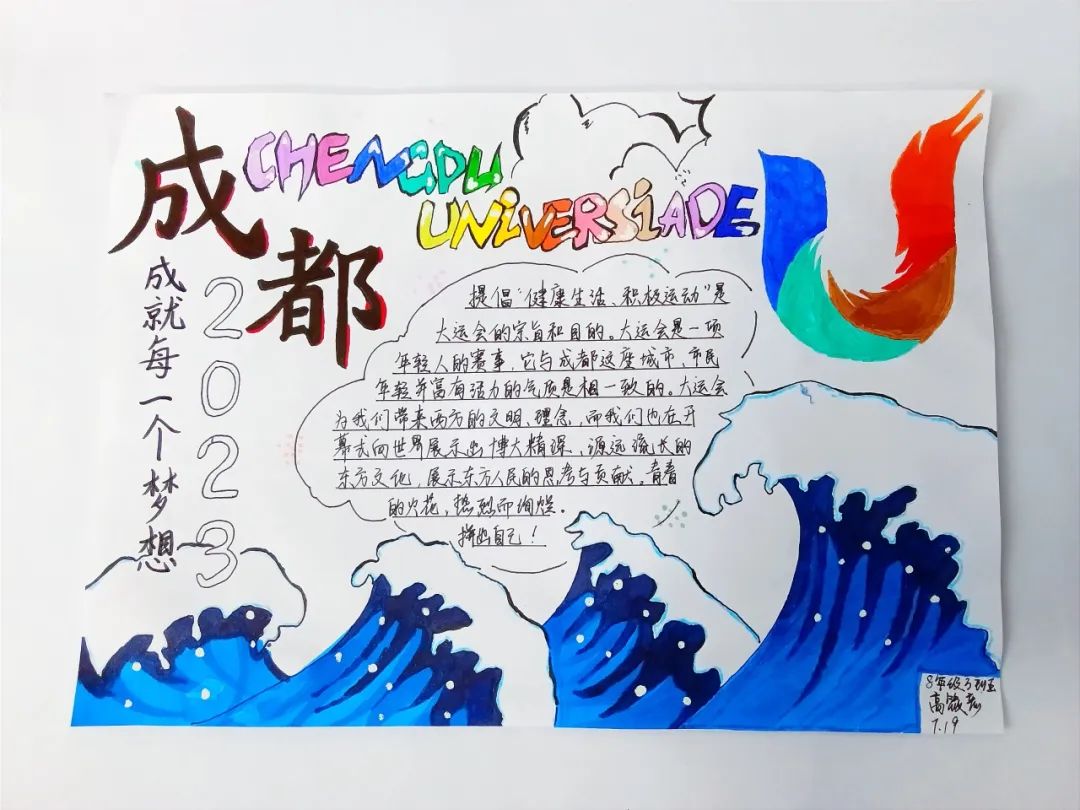 成都
CHENGDU
UNIVERSIADE
成就每一个梦想
2023
提倡“健康生活、积极运动”是
大运会的宗旨和目的。大运会是一项
年轻人的赛事,它与成都这座城市、市民
年轻并富有活力的气质是相一致的。大运会
为我们带来西方的文明、理念,而我们也在开
幕式向世界展示出博大精深,源远流长的
东方文化,展示东方人民的思考与贡献,青春
的火花,热烈而绚烂。
拼出自己!
8年级3班
高
7.19